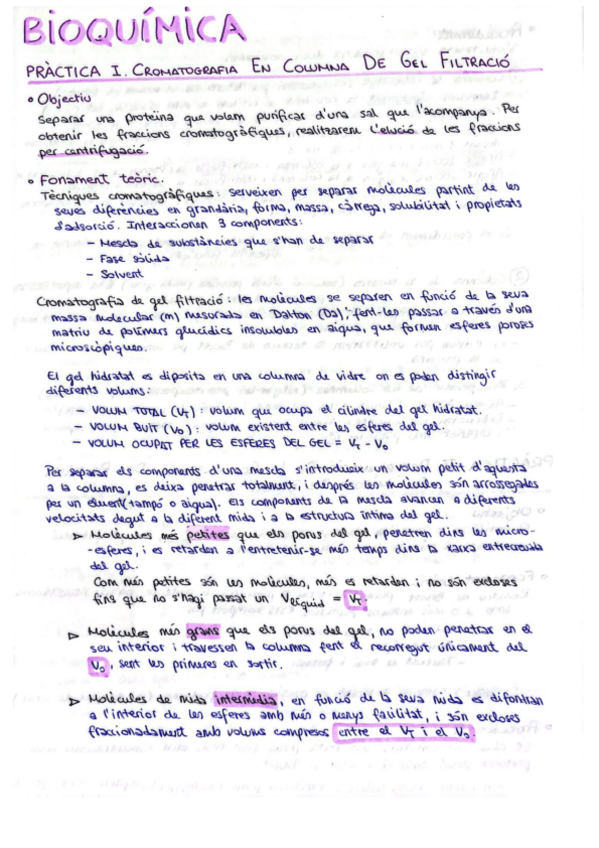 BIOQUÍMICA
PRÀCTICA I. CROMATOGRAFIA EN COLUMNA DE GEL FILTRACIÓ
• Objectiu
Separar una proteïna que volem purificar d'una sal que l'acompanya. Per
obtenir les fraccions cromatogràfiques, realitzarem l'elució de les fraccions
per centrifugació.
• Fonament teòric.
Tècniques cromatogràfiques: serveixen per separar molècules partint de les
seves diferències en grandària, forma, massa, càrrega, solubilitat i propietats
d'adsorció. Interaccionen 3 components:
– Mescla de substàncies que s'han de separar
– Fase sòlida
– Solvent
Cromatografia de gel filtració: les molècules se separen en funció de la seva
massa molecular (m) mesurada en Dalton (Da); fent-les passar a través d'una
matriu de polímers glucídics insolubles en aigua, que formen esferes poroses
microscòpiques.
El gel hidratat es diposita en una columna de vidre on es poden distingir
diferents volums:
– VOLUM TOTAL (VT): volum que ocupa el cilindre del gel hidratat.
– VOLUM BUIT (Vo): volum existent entre les esferes del gel.
– VOLUM OCUPAT PER LES ESFERES DEL GEL = VT - Vo
Per separar els components d'una mescla s'introdueix un volum petit d'aquesta
a la columna, es deixa penetrar totalment, i després les molècules són arrossegades
per un eluent (tampó o aigua). Els components de la mescla avancen a diferents
velocitats degut a la diferent mida i a la estructura íntima del gel.
▷ Molècules més petites que els porus del gel, penetren dins les micro-
-esferes, i es retarden a l'entretenir-se més temps dins la xarxa entrecreuada
del gel.
Com més petites són les molècules, més es retarden i no són excloses
fins que no s'hagi passat un Vlíquid = VT.
▷ Molècules més grans que els porus del gel, no poden penetrar en el
seu interior i travessen la columna fent el recorregut únicament del
Vo, sent les primeres en sortir.
▷ Molècules de mida intermèdia, en funció de la seva mida es difontran
a l'interior de les esferes amb més o menys facilitat, i són excloses
fraccionadament amb volums compresos entre el VT i el Vo.